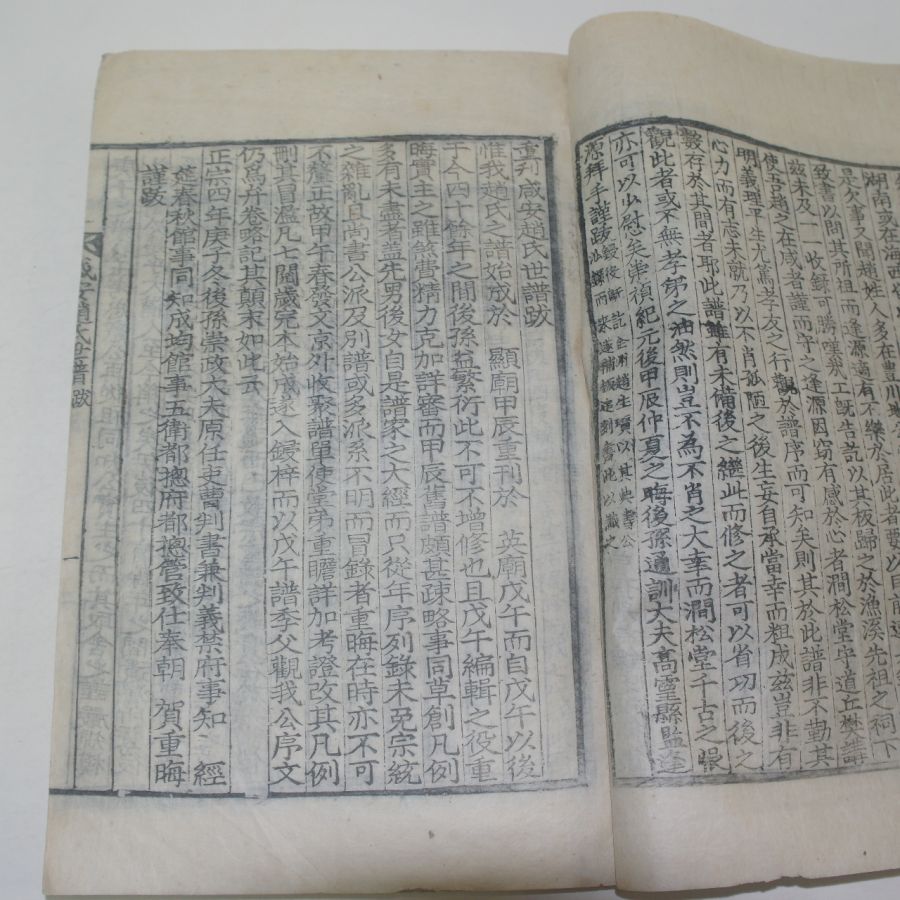 湖南或在海西
是欠事又聞趙姓人多在豊川
致書以問其所祖而逢源適有不樂於居此者要以
玆未及一一收錄可勝唾泉工旣告訖以其板歸之於漁溪先祖之祠下
使吾趙之在咸者謹而守之逢源因窃有感於心者澗松堂守道丘樊講
明義理平生尤篤孝友之行觀於譜序而可知矣則其於此譜非不勤其
心力而有志未就乃以不肖孤陋之後生妄自承當幸而粗成玆豈非有
數存於其間者耶此譜雖有未備後之繼此而修之者可以省功而後之
觀此者或不無孝弟之油然則豈不為不肖之大幸而澗松堂千古之眼
亦可以少慰矣崇禎紀元後甲辰仲夏之晦後孫通訓大夫高靈縣監逢
源拜手謹跋
重刊咸安趙氏世譜跋
惟我趙氏之譜始成於 顯廟甲辰重刊於 英廟戊午而自戊午以後
于今四十餘年之間後孫益繁衍此不可不增修也且戊午編輯之役重
晦實主之雖煞費精力克加詳審而甲辰舊譜頗甚疎略事同草創凡例
多有未盡者盖先男後女自是譜家之大經而只從年序列錄未免宗統
之雜亂且尙書公派及別譜或多派系不明而冒錄者重晦在時亦不可
不釐正故甲午春發文京外收聚譜單使堂弟重瞻詳加考證改其凡例
刪其冒濫凡七閱歲完本始成遂入鋟梓而以戊午譜季父觀我公序文
仍爲弁卷略記其顚末如此云
正宗四年庚子冬後孫崇政大夫原任吏曹判書兼判義禁府事知 經
筵春秋館事同知成均館事五衛都摠府都摠管致仕奉朝 賀重晦
謹跋
咸安趙氏世譜 跋
一